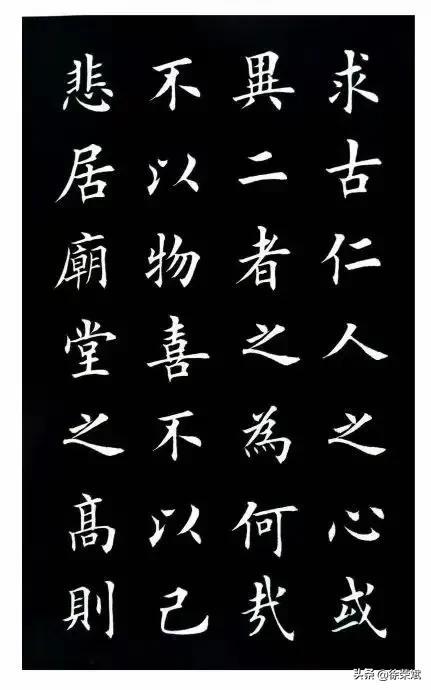 求古仁人之心或
異二者之為何哉
不以物喜不以己
悲居廟堂之髙則
头条 @徐荣斌